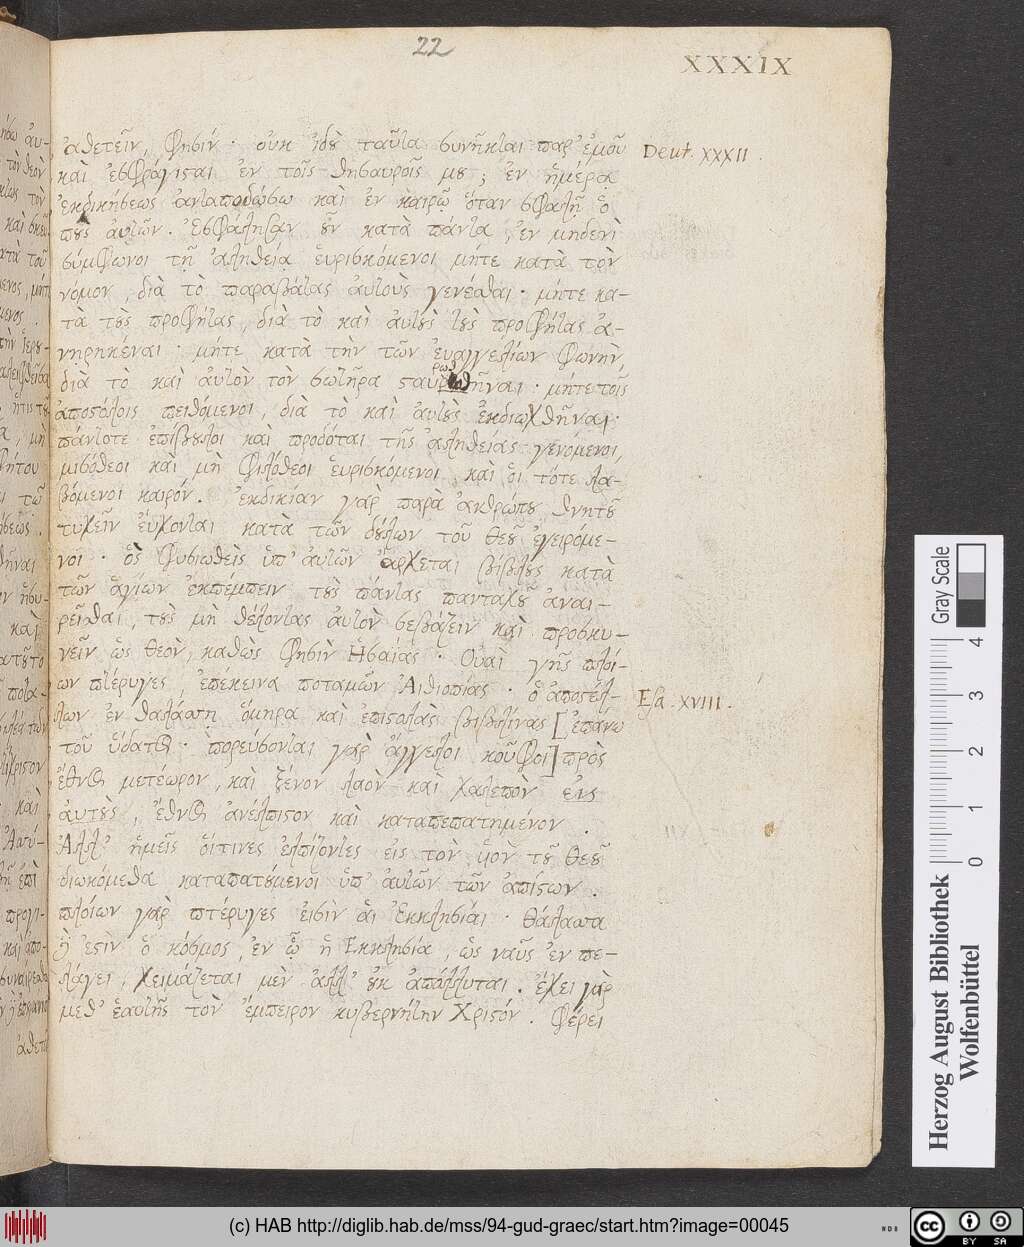 22
XXXIX
ἀθετεῖν, φησίν · οὐκ ἰδοὺ ταῦτα συνῆκται παρ' ἐμοῦ
Deut. XXXII.
καὶ ἐσφράγισται ἐν τοῖς θησαυροῖς μου; ἐν ἡμέρᾳ
ἐκδικήσεως ἀνταποδώσω καὶ ἐν καιρῷ ὅταν σφαλῇ ὁ
ποὺς αὐτῶν. Ἐσφάλησαν οὖν κατὰ πάντα, ἐν μηδενὶ
σύμφωνοι τῇ ἀληθείᾳ εὑρισκόμενοι μήτε κατὰ τὸν
νόμον, διὰ τὸ παραβάτας αὐτοὺς γενέσθαι · μήτε κα-
τὰ τοὺς προφήτας, διὰ τὸ καὶ αὐτοὺς τοὺς προφήτας ἀ-
νῃρηκέναι · μήτε κατὰ τὴν τῶν εὐαγγελίων φωνὴν,
διὰ τὸ καὶ αὐτὸν τὸν σωτῆρα σταυρωθῆναι · μήτε τοῖς
ἀποστόλοις πειθόμενοι, διὰ τὸ καὶ αὐτοὺς ἐκδιωχθῆναι ·
πάντοτε ἐπίβουλοι καὶ προδόται τῆς ἀληθείας γενόμενοι,
μισόθεοι καὶ μὴ φιλόθεοι εὑρισκόμενοι, καὶ οἱ τότε λα-
βόμενοι καιρόν. ἐκδικίαν γὰρ παρὰ ἀνθρώπου θνητοῦ
τυχεῖν εὔχονται κατὰ τῶν δούλων τοῦ θεοῦ ἐγειρόμε-
νοι · ὃς φυσιωθεὶς ὑπ' αὐτῶν ἄρχεται βίβλους κατὰ
τῶν ἁγίων ἐκπέμπειν τοὺς πάντας πανταχοῦ ἀναι-
ρεῖσθαι, τοὺς μὴ θέλοντας αὐτὸν σεβάζειν καὶ προσκυ-
νεῖν ὡς θεὸν, καθὼς φησὶν Ἡσαίας · Οὐαὶ γῆς πλοί-
ων πτέρυγες, ἐπέκεινα ποταμῶν Αἰθιοπίας · ὁ ἀποστέλ-
Esa. XVIII.
λων ἐν θαλάσσῃ ὅμηρα καὶ ἐπιστολὰς βιβλίνας [ἐπάνω
τοῦ ὕδατος · πορεύσονται γὰρ ἄγγελοι κοῦφοι] πρὸς
ἔθνος μετέωρον, καὶ ξένον λαὸν καὶ χαλεπὸν εἰς
αὐτοὺς, ἔθνος ἀνέλπιστον καὶ καταπεπατημένον.
Ἀλλ' ἡμεῖς οἵτινες ἐλπίζοντες εἰς τὸν υἱὸν τοῦ Θεοῦ
διωκόμεθα καταπατούμενοι ὑπ' αὐτῶν τῶν ἀπίστων.
πλοίων γὰρ πτέρυγες εἰσὶν αἱ ἐκκλησίαι · θάλασσα
δ' ἐστὶν ὁ κόσμος, ἐν ᾧ ἡ Ἐκκλησία, ὡς ναῦς ἐν πε-
λάγει, χειμάζεται μὲν ἀλλ' οὐκ ἀπόλλυται. ἔχει γὰρ
μεθ' ἑαυτῆς τὸν ἔμπειρον κυβερνήτην Χριστόν. Φέρει
Gray Scale
0 1 2 3 4
Herzog August Bibliothek
Wolfenbüttel
(c) HAB http://diglib.hab.de/mss/94-gud-graec/start.htm?image=00045
cc BY SA